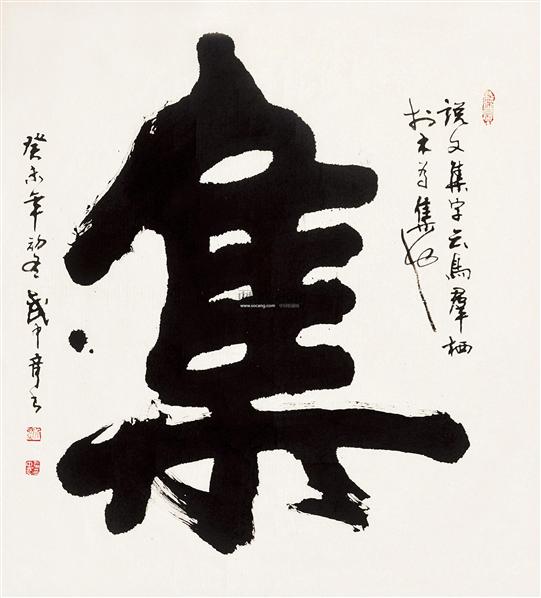 説文集字云鳥羣栖
扵木为集也
集
癸未年初冬武中奇书
www.socang.com